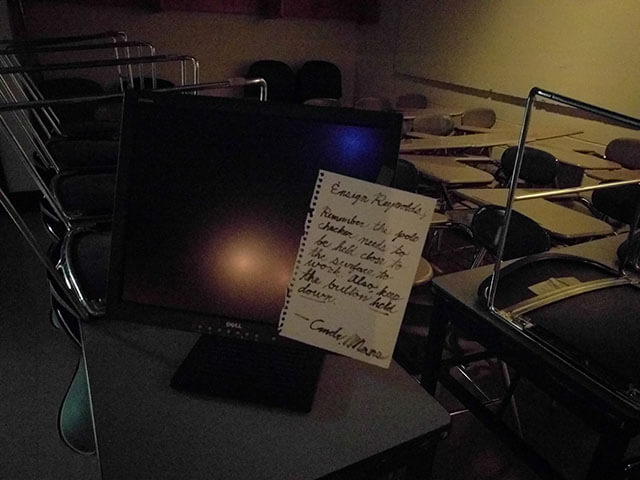 Ensign Reynolds,
Remember the polo
checker needs to
be held close to
the surface to
work. Also, keep
the button held
down.
— Cmdr. Mans
DELL